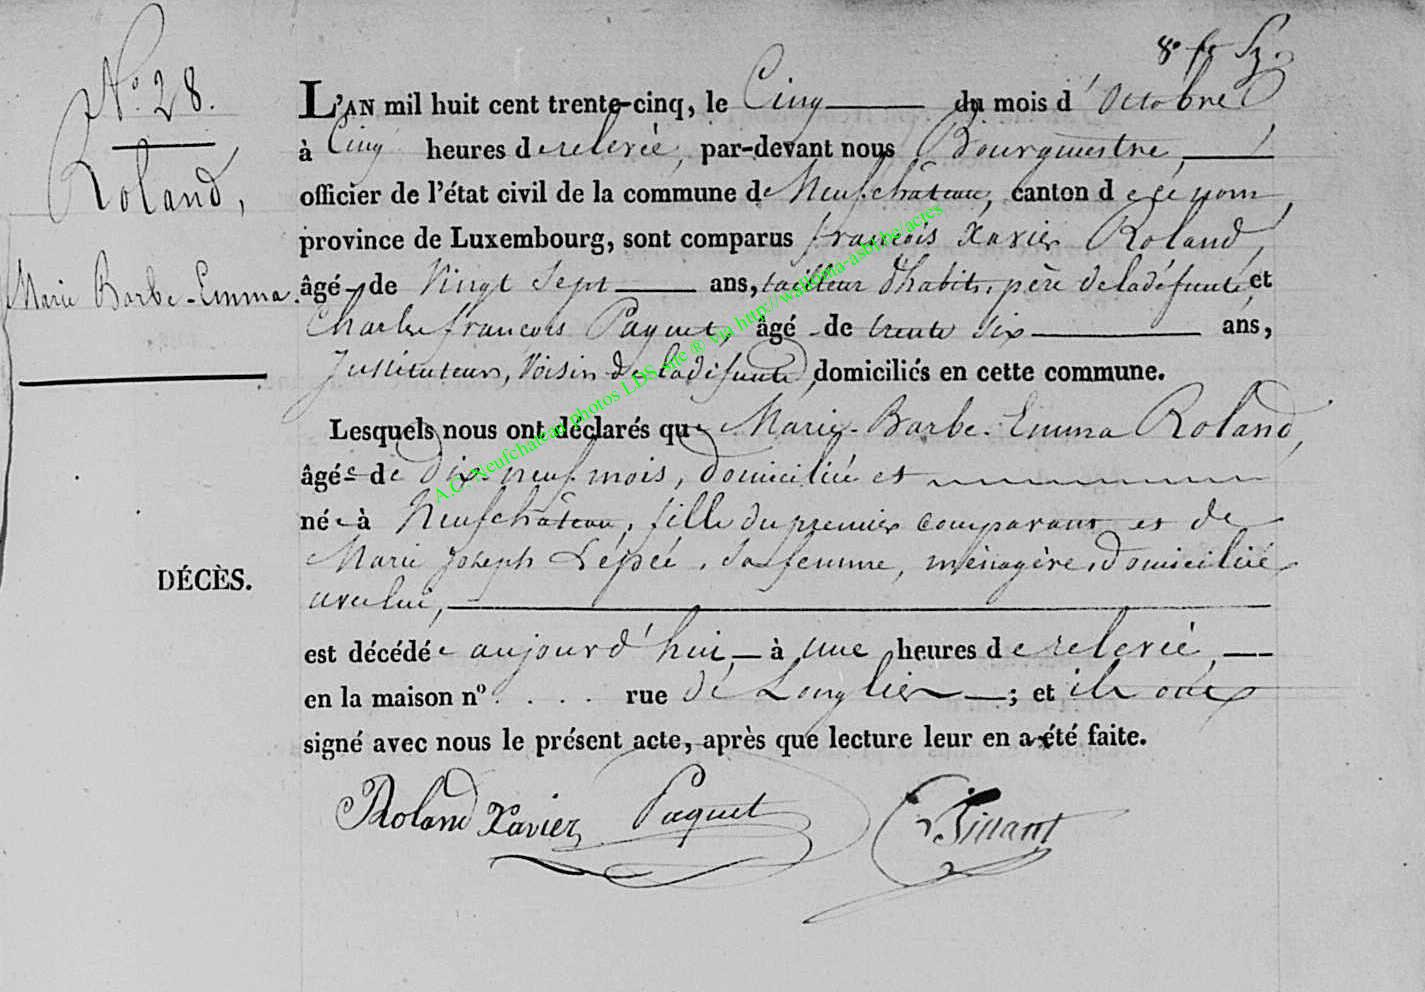 N.º 28.
Roland,
Marie Barbe-Emma.
DÉCÈS.
L'AN mil huit cent trente-cinq, le Cinq du mois d'Octobre
à Cinq heures de relevée, par-devant nous Bourgmestre,
officier de l'état civil de la commune de Neufchâteau, canton de ce nom,
province de Luxembourg, sont comparus françois Xavier Roland,
âgé de Vingt Sept ans, tailleur d'habits, père de la défunte, et
Charles françois Paquet, âgé de trente six ans,
Instituteur, Voisin de la défunte, domiciliés en cette commune.
Lesquels nous ont déclarés que Marie-Barbe-Emma Roland,
âgée de Dix-neuf mois, domiciliée et
née à Neufchâteau, fille du premier comparant et de
Marie Joseph Lépée, sa femme, ménagère, domiciliée
avec lui,
est décédée aujourd'hui, à une heures de relevée,
en la maison nº . . . . rue de Longlier ; et ils ont
signé avec nous le présent acte, après que lecture leur en a été faite.
Roland Xavier Paquet
A.C. Neufchateau Photos LDS site ® via http://wallonia-asbl.be/actes